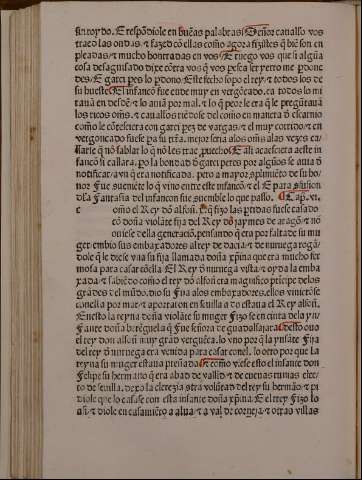 sin toydo. E respõdiole en buẽas palabras. Señor cauallo vos
traed las ondas. & fazed cõ ellas como agora fizistes q̃ biẽ son en
pleadas. & mucho honrradas en vos. E ruego vos que si algũa
cosa desaguisado dixe cõtra vos q̃ vos pese a & yerro me perdone
des. E garci peres lo pdono. Este fecho sopo el rey. & todos los de
su hueste. El infancõ fue ende muy en vergõcado. ca todos lo mi
rauã en desdẽ. & lo auiã por mal. & lo q̃ peor le era q̃ le pregũtauã
los ricos oms. & caualłos riẽdose del como en manera de escarnio
como le cõteſciera con garci perez de vargas. & el muy corrido. & en
vergoncado fuese pa su trr̃a. mejor seria a los oms a las vezes ca
llar lo q̃ nõ fablar lo q̃ nõ les trae puecho. E asi acaesciera a este in
fancõ si callara. po la bondad de garci peres por algũos se auia de
notificar. a vn q̃ era notificada. pero a mayor splimiẽto de su ho
nor fue su emiẽte lo q̃ vino entre este infancõ. & el. E para
desta fantasia del infancon fue su emble lo que paso. Cap. vi.
c como el Rey dõ alfoñ. q̃ fijo las ptidas fuese casado
cõ doña violãte fija del Rey dõ jaymes de aragõ. & nõ
oniese della generaciõ. pensando q̃ era por falta de su mu
ger. embio sus embaxadores al rey de dacia. & de nuruega rogã
dole q̃ le diese vna su fija llamada doña xp̃ina que era mucho fer
mosa para casar cõ ella. El Rey dñ nuruega vista. & oyda la emba
xada. & sabiẽdo como el rey dõ alfoñ era magnifico prĩcipe de los
grãdes del mũdo. dio su fija a los embaxadores. ellos vinierõ se
con ella por mar. & aportarõ en seuilla a do estaua el Rey alfoñ.
En esto la reyna doña violãte su muger fizo se en cinta de la yn
fante doña berẽguela q̃ fue señora de guadalfajara. Desto ouo
el rey don alfoñ muy grãd verguẽca. lo vno por q̃ la ynfãte fija
del rey dñ nuruega era venida para casar con el. lo otro por que la
reyna su muger estaua preñada. & como viese esto el infante don
Felipe su hermano q̃ era abad de vallid. & de cueuas ruuias. elec
to de seuilla. dexo la clerezia & era volũtad del rey su hermão. & pi
diole que lo casase con esta infante doña xp̃ina: E el rey fizo lo
asi. & diole en casamiẽto a alua. & a val de corneja. & otras villas